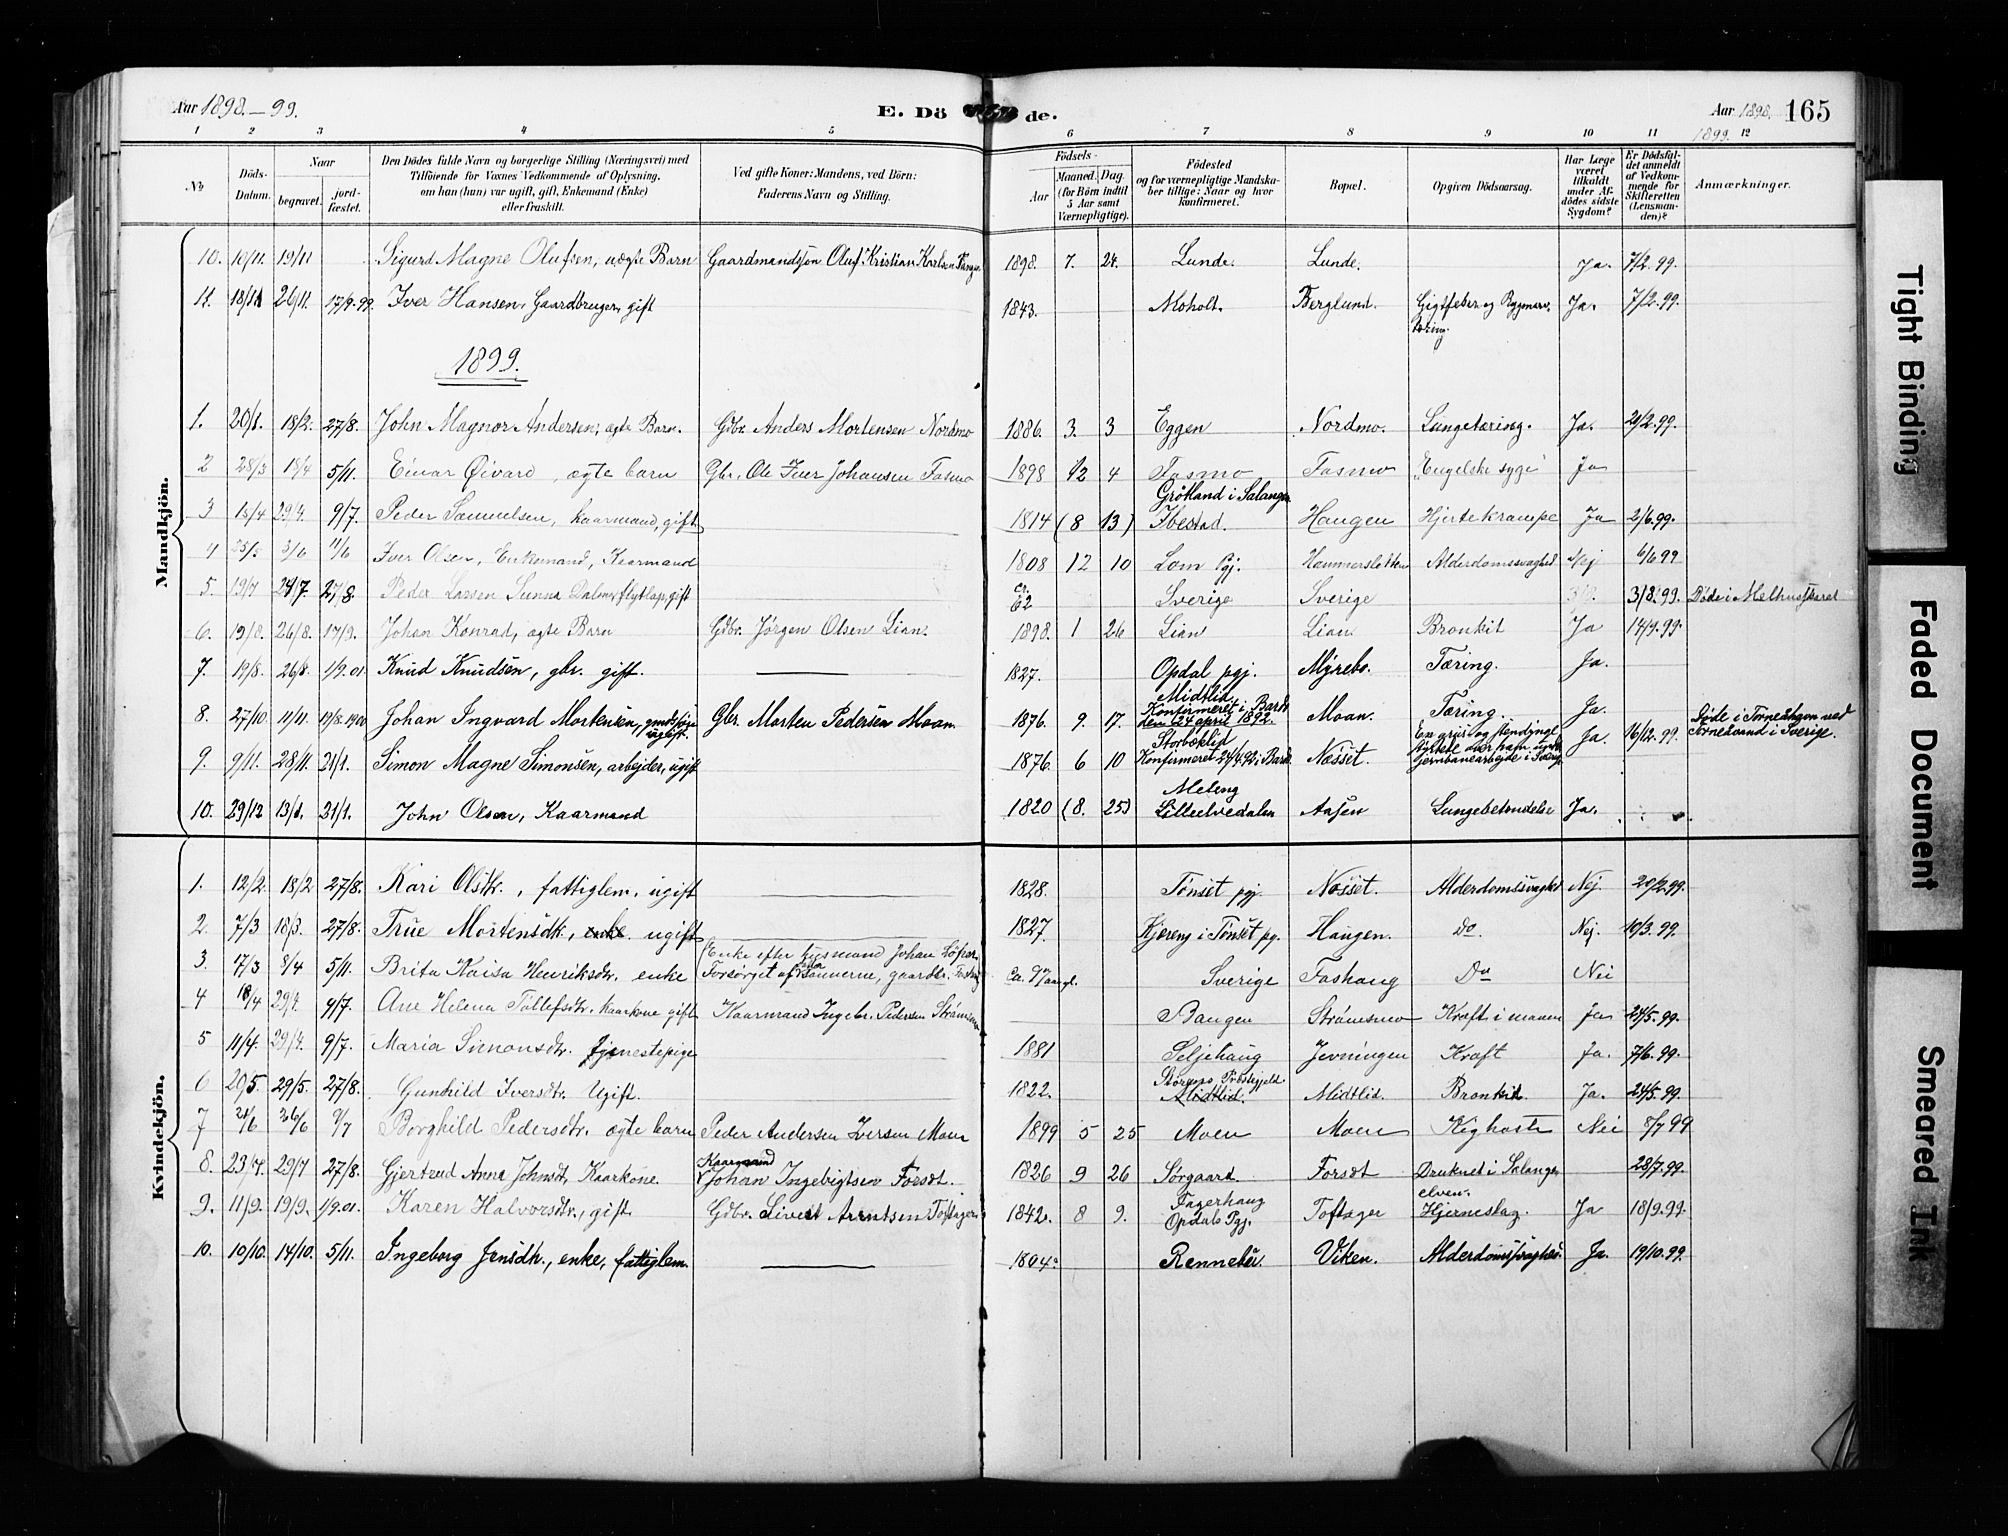 Aar 1898.-99. E. Dö de. Aar 1898. 165
1899.
1 2 3 4 5 6 7 8 9 10 11 12
No Döds-Datum. Naar begravet. jord-fæstet. Den Dödes fulde Navn og borgerlige Stilling (Næringsvei) med Tilföiende for Voxnes Vedkommende af Oplysning, om han (hun) var ugift, gift, Enkemand (Enke) eller fraskilt. Ved gifte Koner: Mandens, ved Börn: Faderens Navn og Stilling. Födsels- Aar Maaned. Dag. (for Börn indtil 5 Aar samt Værnepligtige). Födested og for værnepligtige Mandskaber tillige: Naar og hvor konfirmeret. Bopæl. Opgiven Dödsaarsag. Har Læge været tilkaldt under Afdödes sidste Sygdom? Er Dödsfaldet anmeldt af Vedkommende for Skifteretten (Lensmanden)? Anmærkninger.
Mandkjön.
10. 10/11. 19/11 Sigurd Magne Olufsen, uægte Barn Gaardmandssön Oluf Kristian Karlsen 1898. 7. 24. Lunde. Lunde. Ja. 7/2.99.
11. 18/11 26/11. 17/9.99. Iver Hansen, Gaardbruger, gift 1843. Moholt. Berglund. Gigtfeber og Rygmarvtæring. Ja. 7/2.99.
1899.
1. 20/1. 18/2. 27/8. John Magnor Andersen, ægte Barn. Gdbr. Anders Mortensen Nordmo 1886. 3. 3 Eggen Nordmo. Lungetæring. Ja. 21/2.99.
2 28/3 18/4 5/11. Einar Øivard, ægte barn Gbr. Ole Iver Johansen Fosmo 1898 12 4 Fosmo Fosmo "Engelske syge" Ja
3 13/4 29/4. 9/7. Peder Samuelsen, kaarmand, gift 1814 (8 13) Gröttland i Salangen Ibestad. Haugen Hjertekrampe Ja 2/6.99.
4 25/5 3/6 11/6 Iver Olsen, Enkemand, Kaarmand 1808 12 10 Lom Pgj. Hammersletten Alderdomssvaghed Nej 6/6 99
5. 19/7 24/7. 27/8. Peder Larsen Sunna flytlap, gift ca. 62 Sverige Sverige 3/8.99. Döde i Melhusskaret
6. 19/8. 26/8. 17/9. Johan Konrad, ægte Barn Gdbr. Jørgen Olsen Lian. 1898. 1 26 Lian Lian. Bronkit Ja 14/9.99.
7. 19/8. 26/8. 1/9.01. Knud Knudsen, gbr. gift. 1827. Opdal pgj. Myrebo. Tæring. Ja.
8. 27/10. 11/11. 19/8.1900 Johan Ingvard Mortensen, gmdssön ugift. Gbr. Morten Pedersen Moan 1876. 9. 17. Midtlid Konfirmeret i Bardo den 24 april 1892. Moan. Tæring. Ja.
9. 9/11. 28/11. 21/1. Simon Magne Simonsen, arbejder, ugift 1876. 6 10 Storbæklid Konfirmeret 24/4.92 i Bardo Næsset. En grus og stendynge styrtede over ham under Jernbanearbejde i Sverige Ja. 16/12.99. Döde i Torneåhavn ved Torneåvand i Sverige.
10. 29/12 13/1. 21/1. John Olsen, Kaarmand 1820 (8. 25) Meleng Lilleelvedalen Aasen Lungebetændelse Ja.
Kvindekjön.
1. 12/2. 18/2 27/8. Kari Olsdtr., fattiglem, ugift 1828. Tönset pgj. Næsset. Alderdomssvaghed Nej. 20/2.99.
2. 7/3 18/3. 27/8. True Mortensdtr., enke ugift 1827. Kjæreng i Tönset pg. Haugen. Do. Nej. 10/3.99.
3. 17/3 8/4 5/11. Brita Kaisa Henriksdtr. enke (Enke efter husmand Johan Forsörget af sönnerne, gaardbr. Ca. 90 aar gl. Sverige Foshaug Do Nei
4 18/4 29/4. 9/7. Ane Helena Tollefsdtr. kaarkone gift Kaarmand Ingebr. Pedersen Strömsmo Bangen Strömsmo Kræft i maven Ja 24/5.99.
5 11/4. 29/4. 9/7. Maria Simonsdtr. tjenestepige 1881 Seljehaug Jevningen Kræft Ja. 7/6.99.
6 20/5. 29/5. 27/8. Gunhild Iversdtr. Ugift. 1822. Störens Præstegjeld Midtlid. Midtlid. Bronkit. Ja. 24/5.99.
7 21/6 26/6 9/7 Borghild Pedersdtr. ægte barn Peder Andersen Iversen Moen 1899 5 25 Moen Moen Kighoste Nei 8/7 99
8. 23/7. 29/7 27/8. Gjertrud Anna Johnsdt. Kaarkone. Kaarmand Johan Ingebrigtsen Forsdt. 1826 9 26 Sørgaard. Forsdt Druknet i Salangselven. 28/7.99.
9. 11/9. 19/9. 1/9.01. Karen Halvorsdtr., gift Gdbr. Sivert Arntsen Toftager 1842. 8 9. Fagerhaug Opdals Pgj. Toftager Hjerneslag. Ja 18/9.99.
10. 10/10. 14/10. 5/11. Ingeborg Jensdtr., enke, fattiglem. 1804. Rennebu. Viken. Alderdomssvaghed. Ja. 19/10.99.
Tight Binding
Faded Document
Smeared Ink